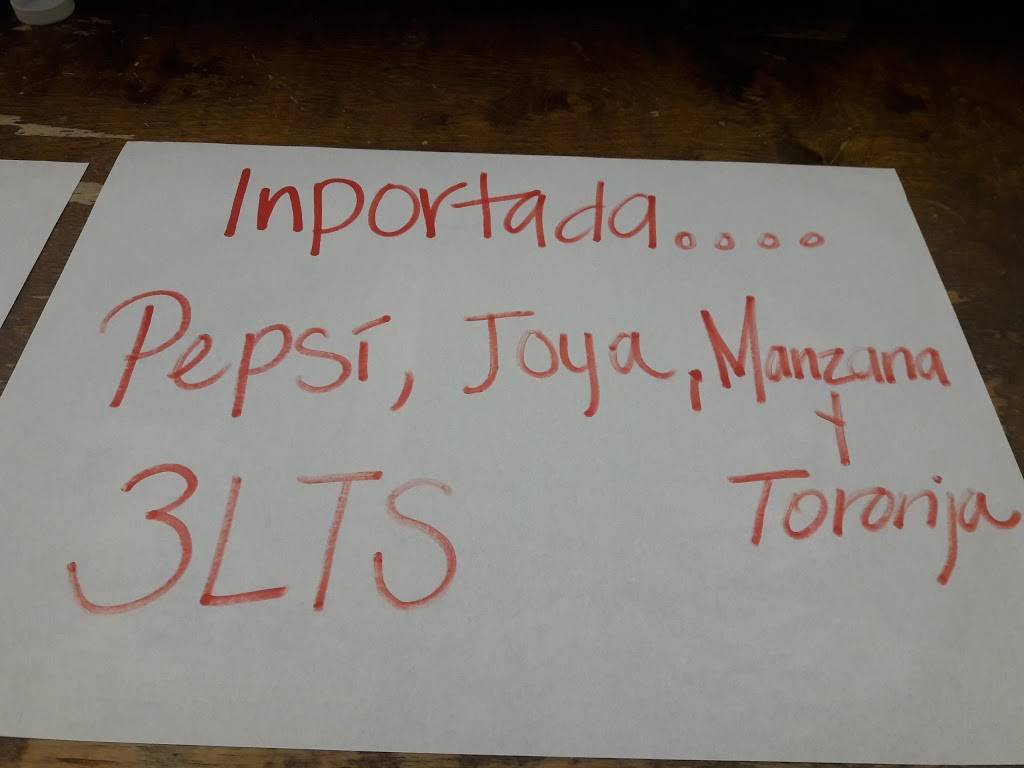 Inportada....
Pepsí, Joya, Manzana
y
Toronja
3LTS